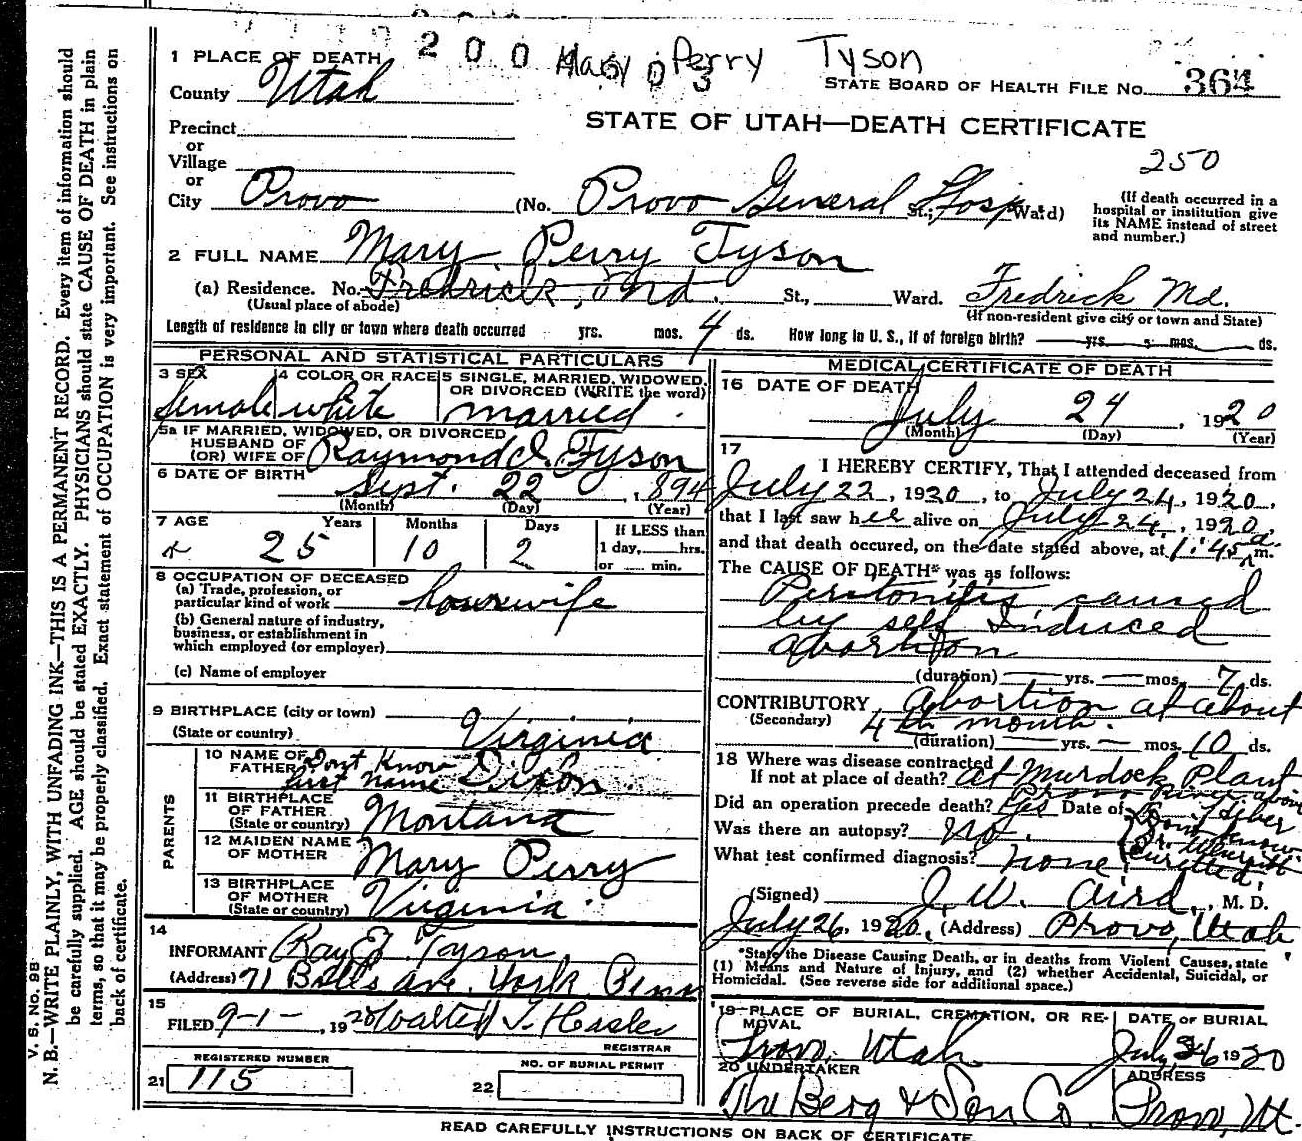 2 0 0 Mary Perry Tyson
0 3
1 PLACE OF DEATH
STATE BOARD OF HEALTH FILE No. 364
County Utah
STATE OF UTAH—DEATH CERTIFICATE
Precinct
or
Village
or
250
City Provo (No. Provo General Hosp. St.; Ward)
(If death occurred in a
hospital or institution give
its NAME instead of street
and number.)
2 FULL NAME Mary Perry Tyson
(a) Residence. No. Fredrick, Md. St., Ward. Fredrick Md.
(Usual place of abode) (If non-resident give city or town and State)
Length of residence in city or town where death occurred yrs. mos. 4 ds. How long in U. S., if of foreign birth? yrs. mos. ds.
PERSONAL AND STATISTICAL PARTICULARS
3 SEX 4 COLOR OR RACE 5 SINGLE, MARRIED, WIDOWED,
OR DIVORCED (WRITE the word)
female white married
5a IF MARRIED, WIDOWED, OR DIVORCED
HUSBAND OF
(OR) WIFE OF Raymond I. Tyson
6 DATE OF BIRTH Sept. 22, 1894
(Month) (Day) (Year)
7 AGE Years Months Days If LESS than
25 10 2 1 day, hrs.
or min.
8 OCCUPATION OF DECEASED
(a) Trade, profession, or
particular kind of work housewife
(b) General nature of industry,
business, or establishment in
which employed (or employer)
(c) Name of employer
9 BIRTHPLACE (city or town)
(State or country) Virginia
PARENTS
10 NAME OF FATHER Dont Know
first name Dixon
11 BIRTHPLACE
OF FATHER
(State or country) Montana
12 MAIDEN NAME
OF MOTHER Mary Perry
13 BIRTHPLACE
OF MOTHER
(State or country) Virginia
14
INFORMANT Ray Tyson
(Address) 71 ave. York Penn
15
FILED 9-1-, 1920 Walter T. Hasler
REGISTRAR
REGISTERED NUMBER NO. OF BURIAL PERMIT
21 115 22
MEDICAL CERTIFICATE OF DEATH
16 DATE OF DEATH
July 24, 1920
(Month) (Day) (Year)
17
I HEREBY CERTIFY, That I attended deceased from
July 22, 1920, to July 24, 1920,
that I last saw her alive on July 24, 1920,
and that death occured, on the date stated above, at 1:45 a m.
The CAUSE OF DEATH* was as follows:
Peritonitis caused
by self Induced
abortion
(duration) yrs. mos. 7 ds.
CONTRIBUTORY abortion at about
(Secondary) 4th month.
(duration) yrs. mos. 10 ds.
18 Where was disease contracted
If not at place of death? at Murdock Plant
Provo
Did an operation precede death? Yes Date of
Was there an autopsy? No.
What test confirmed diagnosis? none
curetted.
(Signed) J. W. Aird, M. D.
July 26, 1920, (Address) Provo, Utah
*State the Disease Causing Death, or in deaths from Violent Causes, state
(1) Means and Nature of Injury, and (2) whether Accidental, Suicidal, or
Homicidal. (See reverse side for additional space.)
19 PLACE OF BURIAL, CREMATION, OR RE-
MOVAL
Provo, Utah
DATE OF BURIAL
July 26 1920
20 UNDERTAKER ADDRESS
The Berg & Son Co. Provo, Ut.
READ CAREFULLY INSTRUCTIONS ON BACK OF CERTIFICATE.
V. S. No. 98
N. B.—WRITE PLAINLY, WITH UNFADING INK—THIS IS A PERMANENT RECORD. Every item of information should
be carefully supplied. AGE should be stated EXACTLY. PHYSICIANS should state CAUSE OF DEATH in plain
terms, so that it may be properly classified. Exact statement of OCCUPATION is very important. See instructions on
back of certificate.